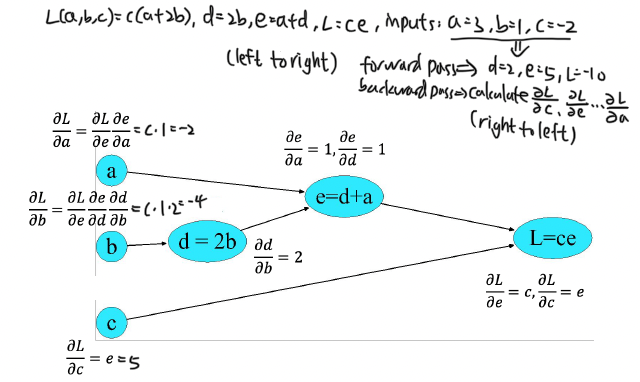 L(a,b,c)=c(a+2b), d=2b, e=a+d, L=ce, inputs: a=3, b=1, c=-2
(left to right) forward pass⇒ d=2, e=5, L=-10
backward pass⇒calculate ∂L/∂c, ∂L/∂e ... ∂L/∂a
(right to left)
∂L/∂a = ∂L/∂e ∂e/∂a = c·1=-2
∂e/∂a = 1, ∂e/∂d = 1
a
e=d+a
∂L/∂b = ∂L/∂e ∂e/∂d ∂d/∂b = c·1·2=-4
b
d = 2b
∂d/∂b = 2
L=ce
∂L/∂e = c, ∂L/∂c = e
c
∂L/∂c = e =5